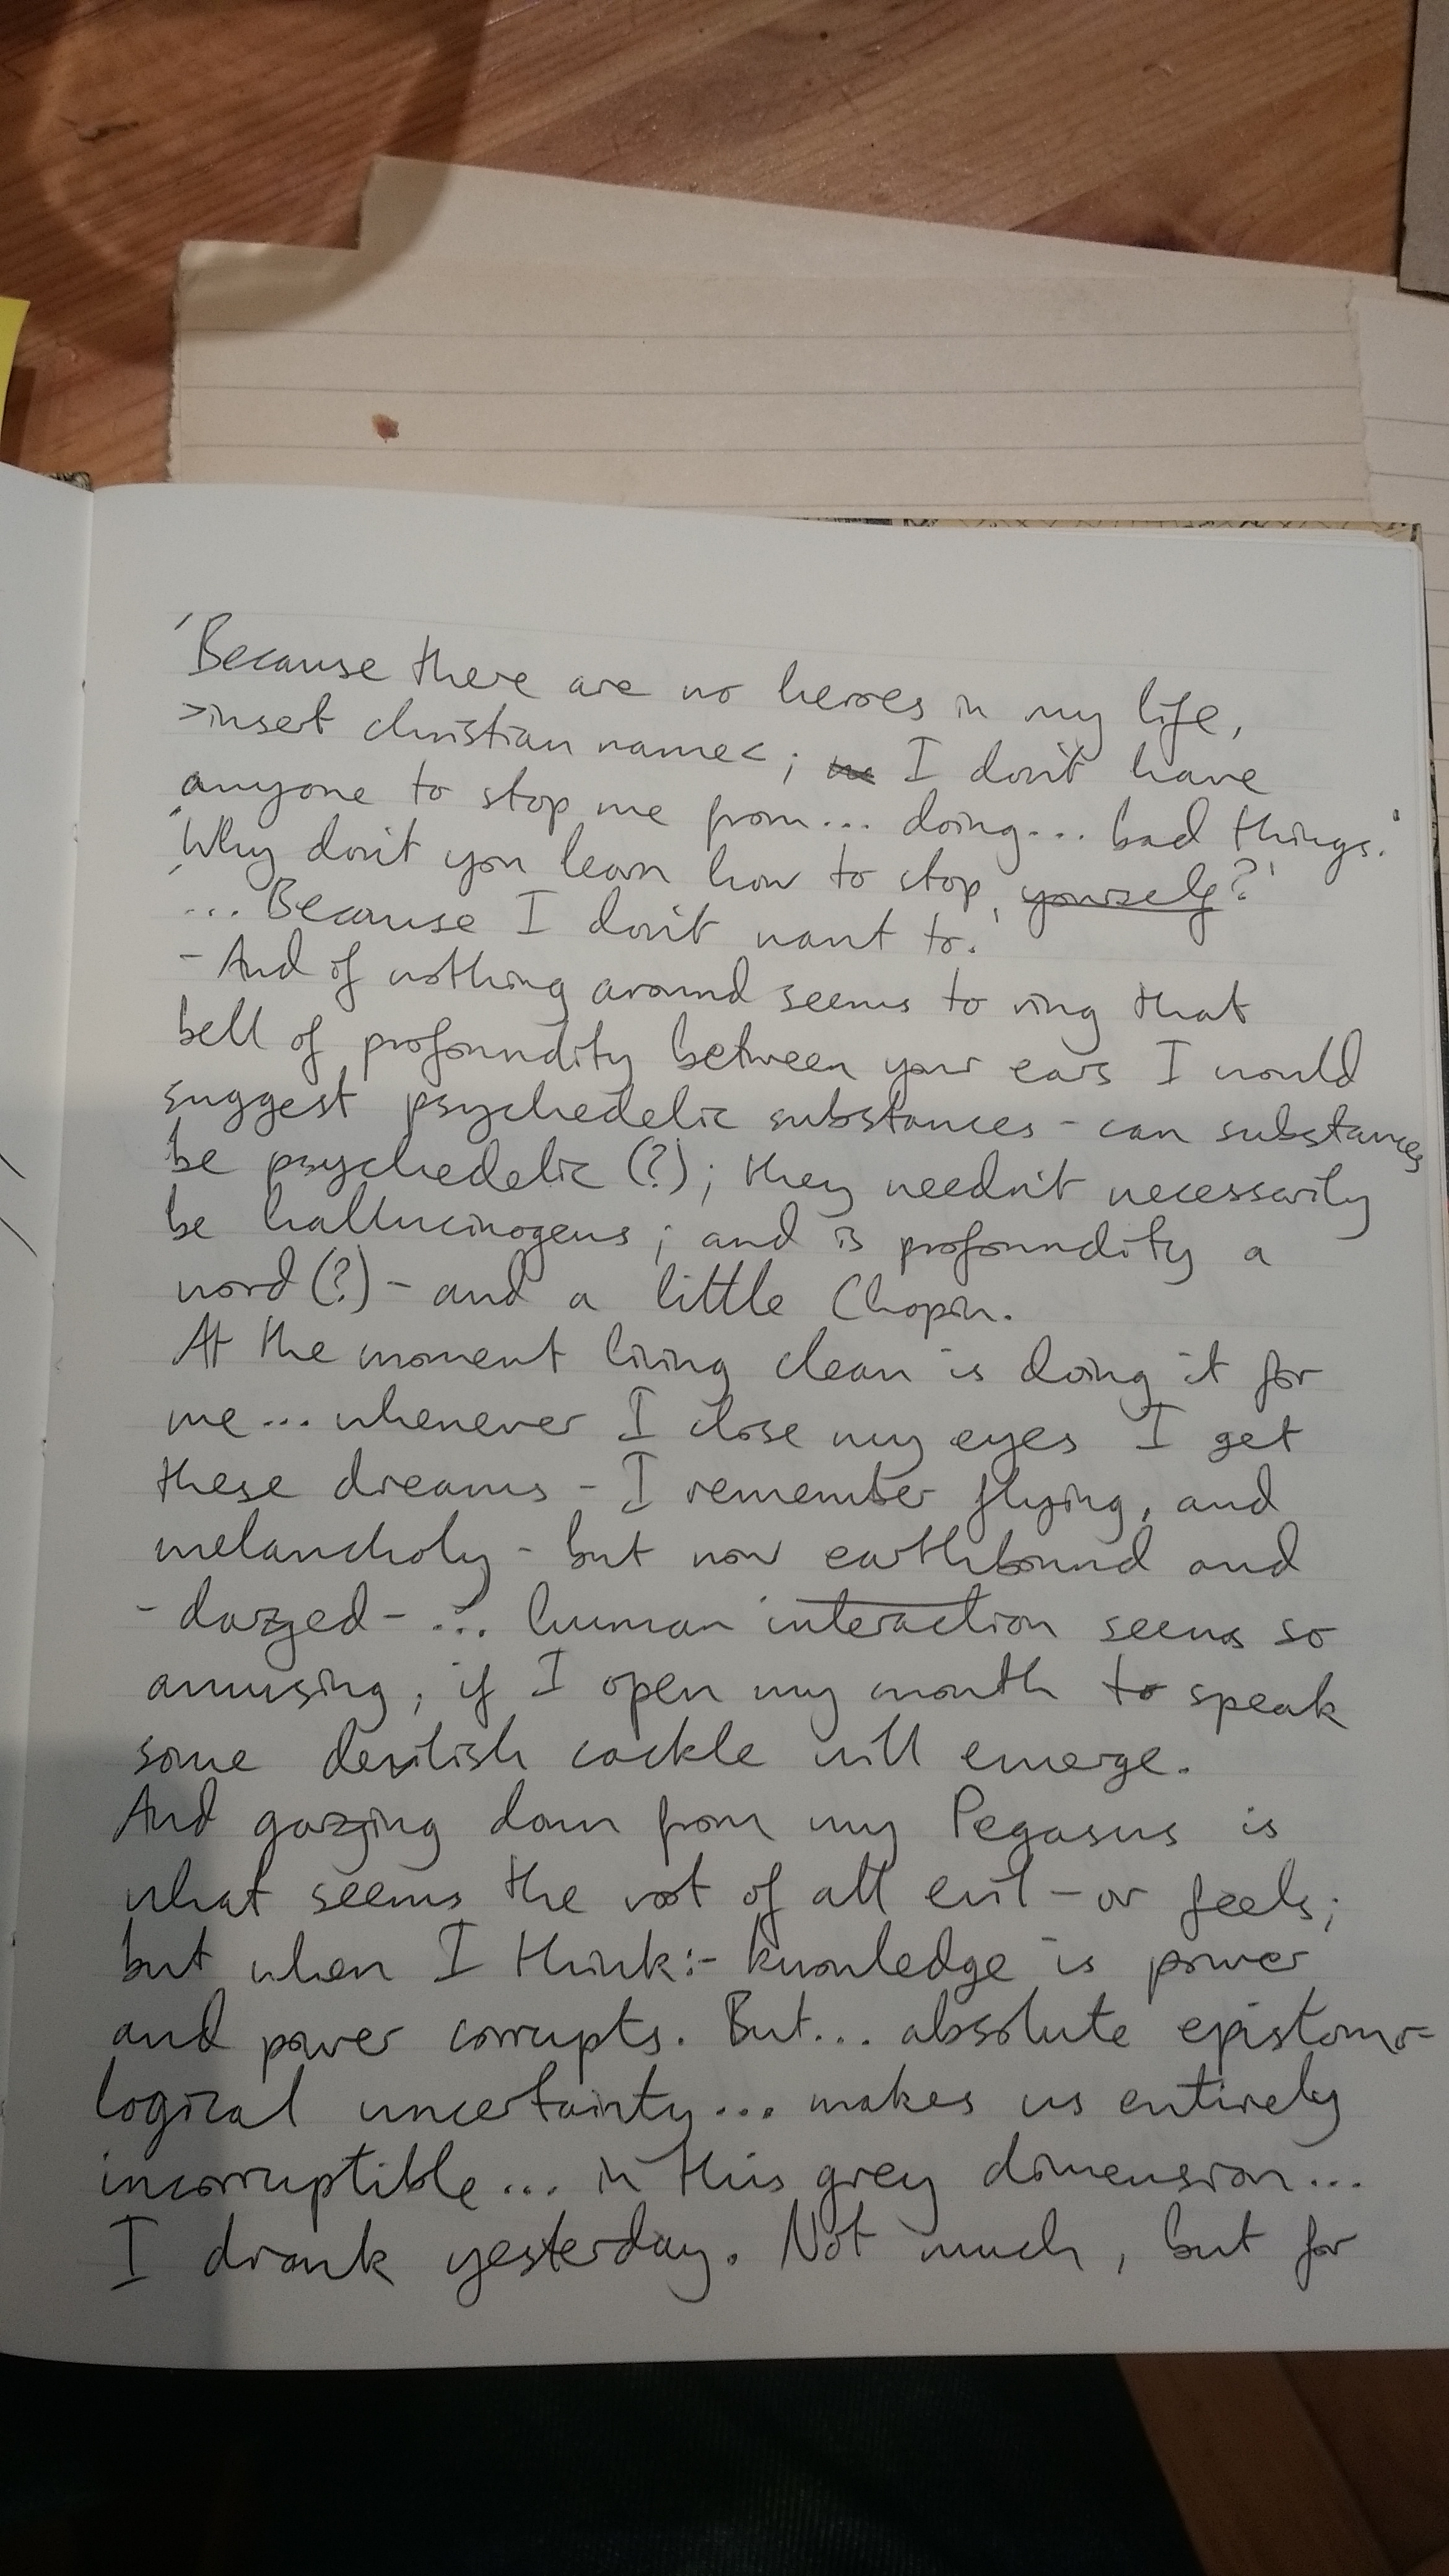 'Because there are no heroes in my life,
>insert christian name<; I don't have
anyone to stop me from... doing... bad things.'
'Why don't you learn how to stop yourself?'
'... Because I don't want to.'
- And if nothing around seems to ring that
bell of profoundity between your ears I would
suggest psychedelic substances - can substances
be psychedelic (?); they needn't necessarily
be hallucinogens; and is profoundity a
word (?) - and a little Chopin.
At the moment living clean is doing it for
me... whenever I close my eyes I get
these dreams - I remember flying, and
melancholy - but now earthbound and
- dazed - ... human interaction seems so
amusing, if I open my mouth to speak
some devilish cackle will emerge.
And gazing down from my Pegasus is
what seems the root of all evil - or feels;
but when I think:- knowledge is power
and power corrupts. But... absolute epistomo-
logical uncertainty... makes us entirely
incorruptible... in this grey dimension...
I drank yesterday. Not much, but for